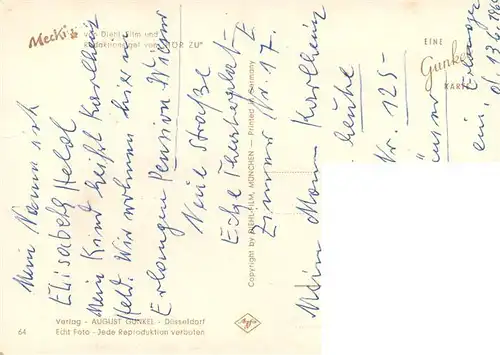 Mecki
von Diehl-Film und
Redaktionsigel von "HÖR ZU"
EINE
Gunkel
KARTE
Mein Name ist
Elisabeth Held
Mein Kind heißt Karlheinz
Held. Wir wohnen hier in
Erlangen Pension Wiesner
Neue Straße
Ecke Theaterplatz
Zimmer Nr. 17.
Mein Mann Karlheinz
heute
Nr. 125-
unser
ein.
Erlangen
d. 13.6.196
Copyright by DIEHL-FILM, MÜNCHEN — Printed in Germany
Agfa
64
Verlag - AUGUST GUNKEL - Düsseldorf
Echt Foto - Jede Reproduktion verboten